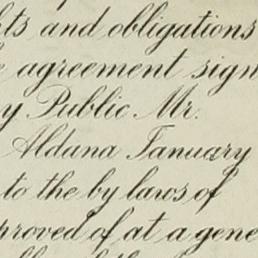 hts and obligations
agreement sign
y Public Mr.
Alduna January
to the by laws of
proved of at a gene